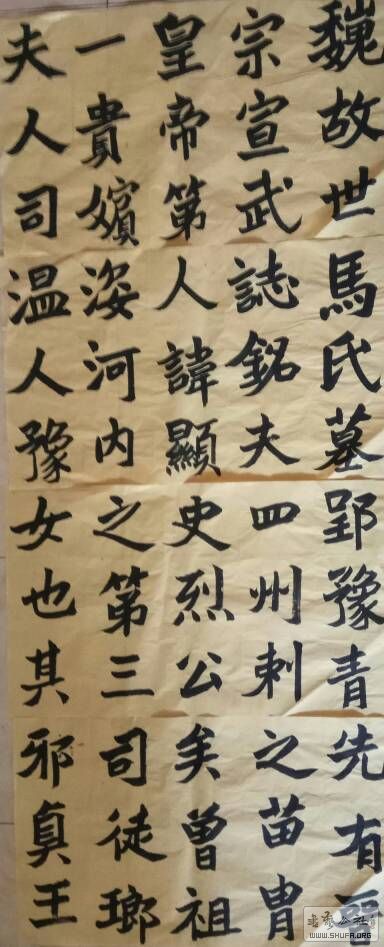 魏故世
宗宣武
皇帝第
一貴嬪
夫人司
馬氏墓
誌銘夫
人諱顯
姿河内
温人豫
郢豫青
四州刺
史烈公
之第三
女也其
先有晉
之苗冑
矣曾祖
司徒瑯
邪貞王
WWW.SHUFA.ORG